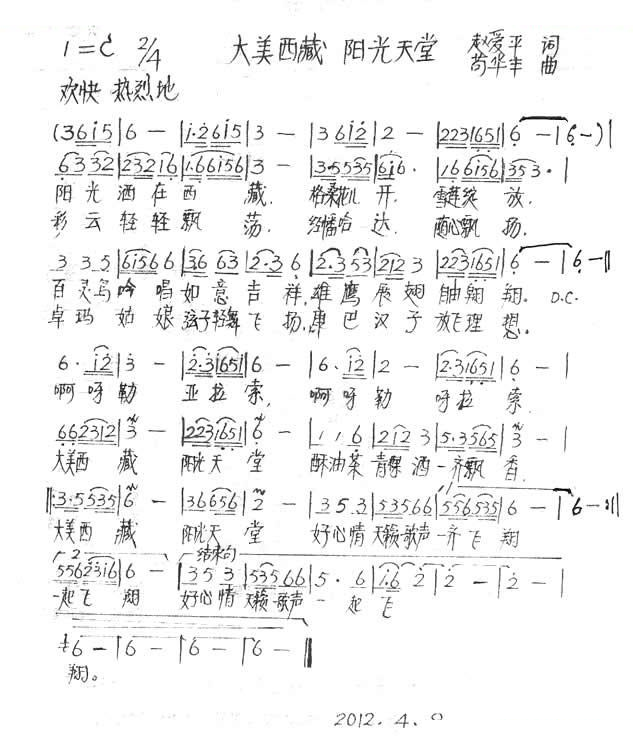 1=C 2/4 大美西藏 阳光天堂 赵爱平 词
苟华丰 曲
欢快 热烈地
(3 6i5 | 6 - | i·2 6i5 | 3 - | 3 6i2 | 2 - | 223 1651 | 6 - | 6 -) |
6332 | 23216 | 1·66156 | 3 - | 3·5535 | 616· | 16 6156 | 353· |
阳光洒在西 藏, 格桑花儿 开, 雪莲绽 放,
彩云轻轻飘 荡, 经幡哈 达, 随心飘 扬,
3 3 5 | 6156 6 | 36 63 | 2·3 6 | 2·3 53 | 212 3 | 223 1651 | 6 - | 6 - ‖
百灵鸟吟唱如意吉祥,雄鹰展翅自由翱翔。D.C.
卓玛姑娘弦子轻舞飞扬,康巴汉子放飞理想。
6· i2 | 3 - | 2·3 1651 | 6 - | 6· i2 | 2 - | 2·3 1651 | 6 - |
啊呀勒 亚拉索, 啊呀勒 呀拉索,
662312 | 3 - | 223 1651 | 6 - | 1 1 6 | 212 3 | 5·3565 | 3 - |
大美西 藏 阳光天 堂 酥油茶青稞酒一齐飘香,
‖:3·5535 | 6 - | 36656 | 2 - | 3 5 3 | 53566 | 556535 | 6 - | 6 - :‖
大美西 藏 阳光天 堂 好心情天籁歌声一齐飞翔
2 结束句
5562316 | 6 - | 3 5 3 | 53566 | 5· 6 | i·6 2 | 2 - | 2 - |
一起飞 翔 好心情天籁歌声一 起 飞
6 - | 6 - | 6 - | 6 - ‖
翔。
2012. 4.